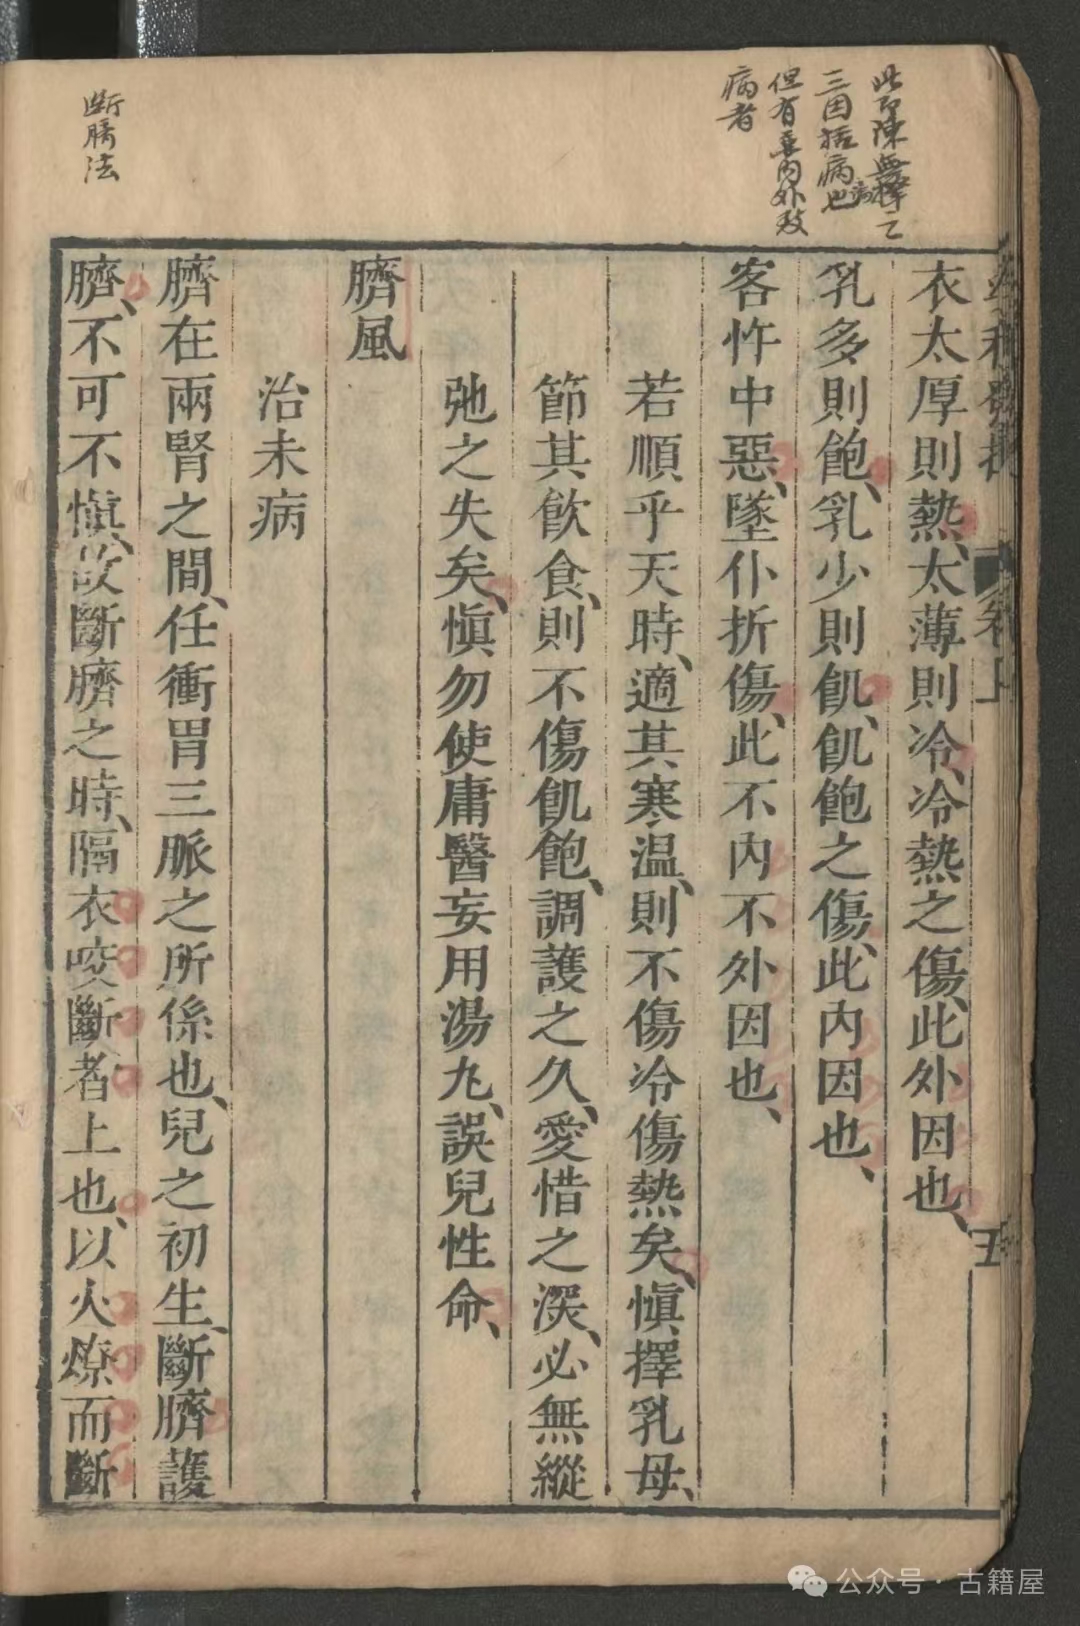 此即陳無擇之
三因括病也
但有兼內外致
病者
斷臍法
衣太厚則熱、太薄則冷、冷熱之傷、此外因也、
乳多則飽、乳少則飢、飢飽之傷、此內因也、
客忤中惡、墜仆折傷、此不內不外因也、
若順乎天時、適其寒温、則不傷冷傷熱矣、慎擇乳母、
節其飲食、則不傷飢飽、調護之久、愛惜之深、必無縱
弛之失矣、慎勿使庸醫妄用湯丸、誤兒性命、
臍風
治未病
臍在兩腎之間、任衝胃三脈之所係也、兒之初生、斷臍護
臍、不可不慎、故斷臍之時、隔衣咬斷者上也、以火燎而斷
卷上
五
公众号·古籍屋